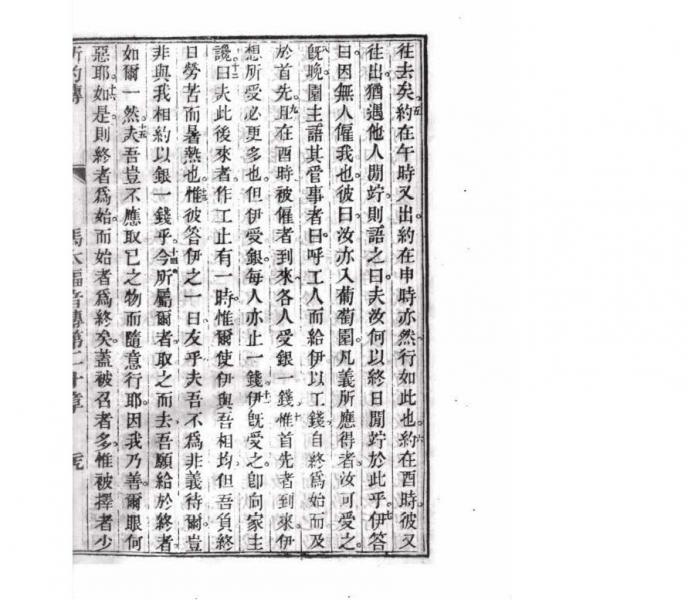 往去矣五約在午時又出約在申時亦然行如此也六約在酉時彼又
往出猶遇他人閒竚則語之曰夫汝何以終日閒竚於此乎七伊答
曰因無人僱我也彼曰汝亦入葡萄園凡義所應得者汝可受之
八既晚園主語其管事者曰呼工人而給伊以工錢自終為始而及
於首先九且在酉時被僱者到來各人受銀一錢十惟首先者到來伊
想所受必更多也但伊受銀每人亦止一錢十一伊既受之卽向家主
讒十二曰夫此後來者作工止有一時惟爾使伊與吾相均但吾負終
日勞苦而暑熱也十三惟彼答伊之一曰友乎夫吾不為非義待爾豈
非與我相約以銀一錢乎十四今所屬爾者取之而去吾願給於終者
如爾一然十五夫吾豈不應取己之物而隨意行耶因我乃善爾眼何
惡耶十六如是則終者為始而始者為終矣蓋被召者多惟被擇者少
馬太福音傳第二十章